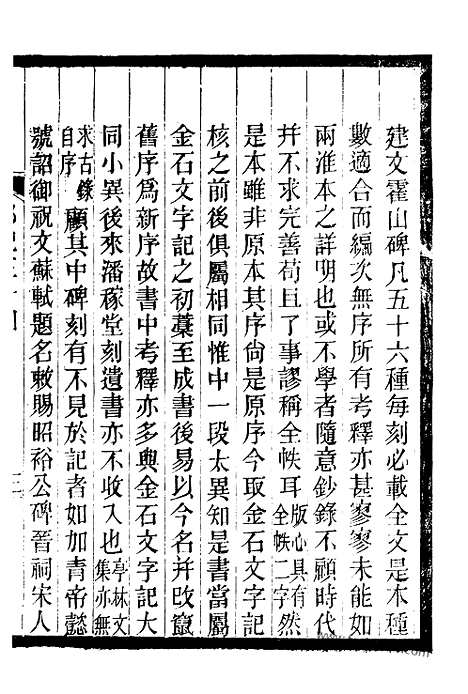 建文霍山碑凡五十六種每刻必載全文是本種
數適合而編次無序所有考釋亦甚寥寥未能如
兩淮本之詳明也或不學者隨意鈔錄不顧時代
并不求完善苟且了事謬稱全帙耳版心具有全帙二字然
是本雖非原本其序尙是原序今取金石文字記
核之前後俱屬相同惟中一段太異知是書當屬
金石文字記之初藁至成書後易以今名并改竄
舊序爲新序故書中考釋亦多與金石文字記大
同小異後來潘稼堂刻遺書亦不收入也亭林文集亦無
求古錄自序顧其中碑刻有不見於記者如加青帝懿
號詔御祝文蘇軾題名敕賜昭裕公碑晉祠宋人